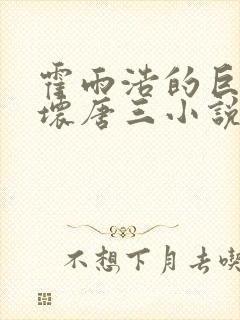 霍雨浩的巨
壞唐三小說
不想下月去喫